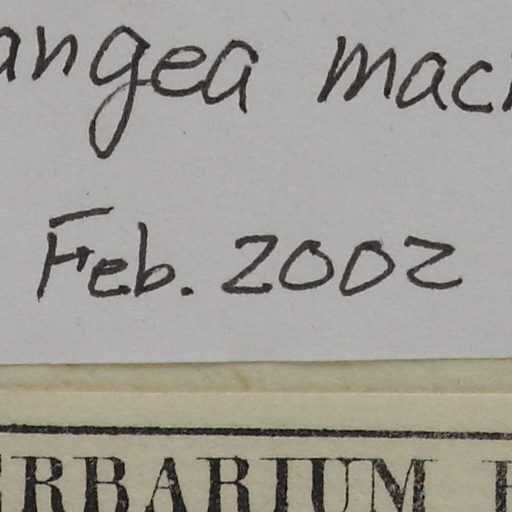 angea mac
Feb. 2002
ERBARIUM